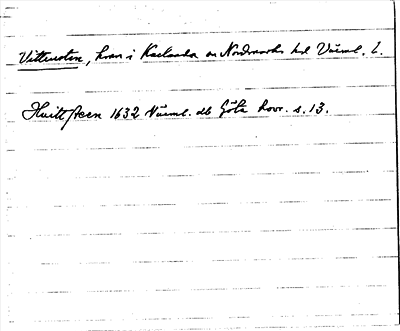 Vittensten, kvarn i Karlanda sn Nordmarks hd Värml. l.
Huittsteen 1632 Värml. db Göta hovr. s. 13.